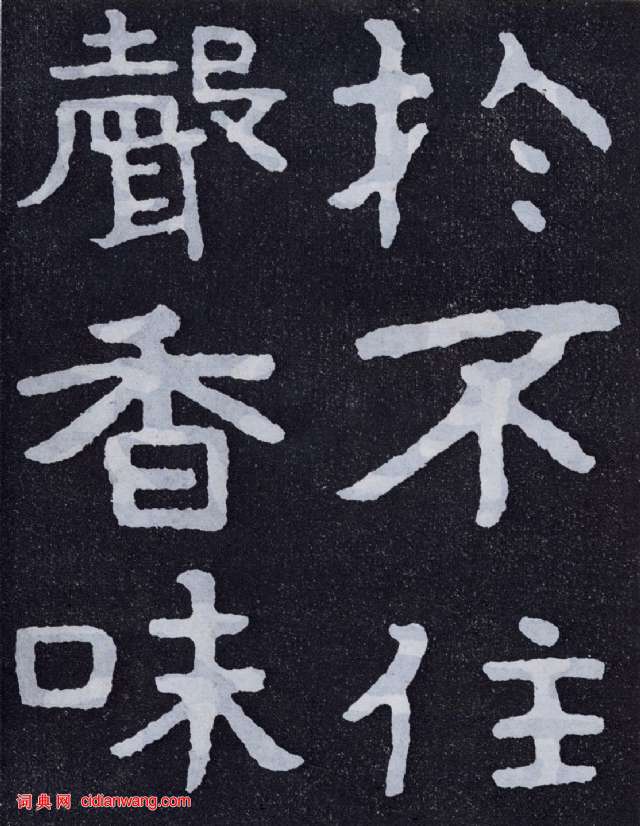 於不住
聲香味
词典网 cidianwang.com